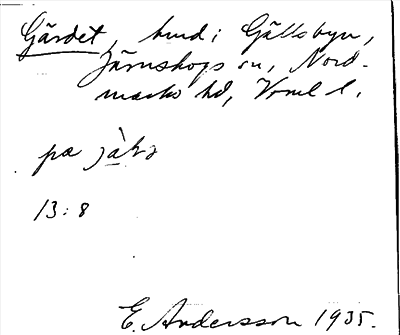 Gärdet, hmd i Gällsbyn,
Järnskogs sn, Nord-
marks hd, Vrml l.
pa
13:8
E. Andersson 1935.